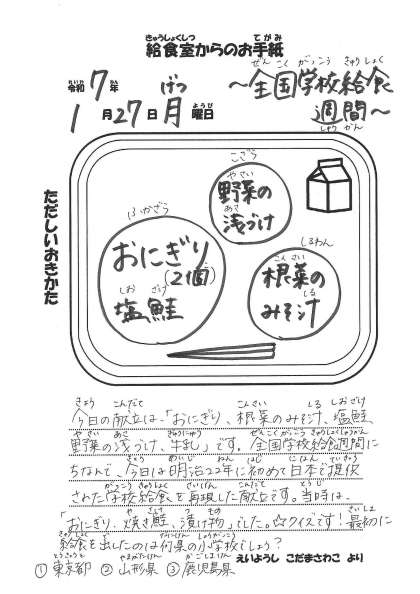 きゅうしょくしつ てがみ
給食室からのお手紙
れいわ ねん げつ ようび
令和7年
1月27日月曜日
ぜんこくがっこうきゅうしょく
〜全国学校給食
週間〜
しゅうかん
ただしいおきかた
こざら
やさい
野菜の
あさ
浅づけ
ふかざら
おにぎり
(2個)
しお ざけ
塩鮭
しるわん
こんさい
根菜の
しる
みそ汁
きょう こんだて こんさい しる しおざけ
今日の献立は、「おにぎり、根菜のみそ汁、塩鮭
やさい あさ ぎゅうにゅう ぜんこくがっこうきゅうしょくしゅうかん
野菜の浅づけ、牛乳」です。全国学校給食週間に
きょう めいじ ねん はじ にほん ていきょう
ちなんで、今日は明治22年に初めて日本で提供
がっこうきゅうしょく さいげん こんだて とうじ
された学校給食を再現した献立です。当時は、
や ざけ つ もの さいしょ
「おにぎり、焼き鮭、漬け物」でした。☆クイズです!最初に
きゅうしょく だ なにけん しょうがっこう
給食を出したのは何県の小学校でしょう?
とうきょうと やまがたけん かごしまけん
①東京都 ②山形県 ③鹿児島県
えいようし こだまさわこ より